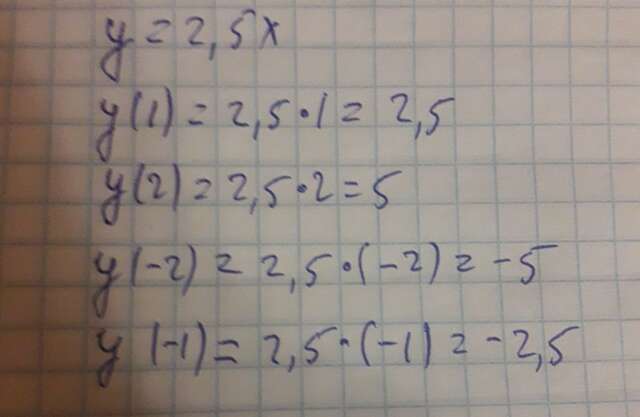 y = 2,5x
y(1) = 2,5·1 = 2,5
y(2) = 2,5·2 = 5
y(-2) = 2,5·(-2) = -5
y(-1) = 2,5·(-1) = -2,5